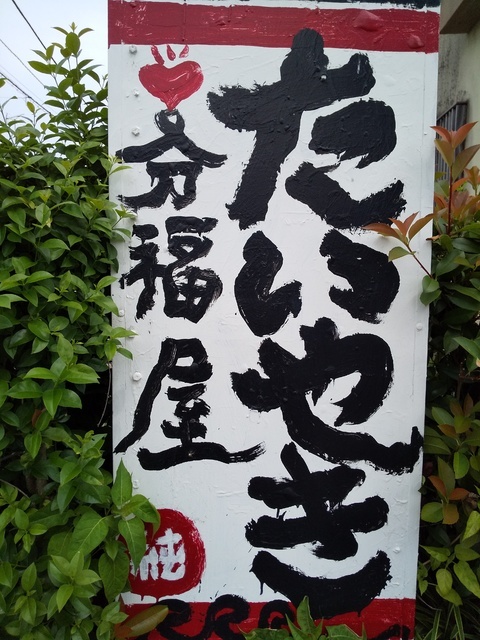 たいやき
分福屋